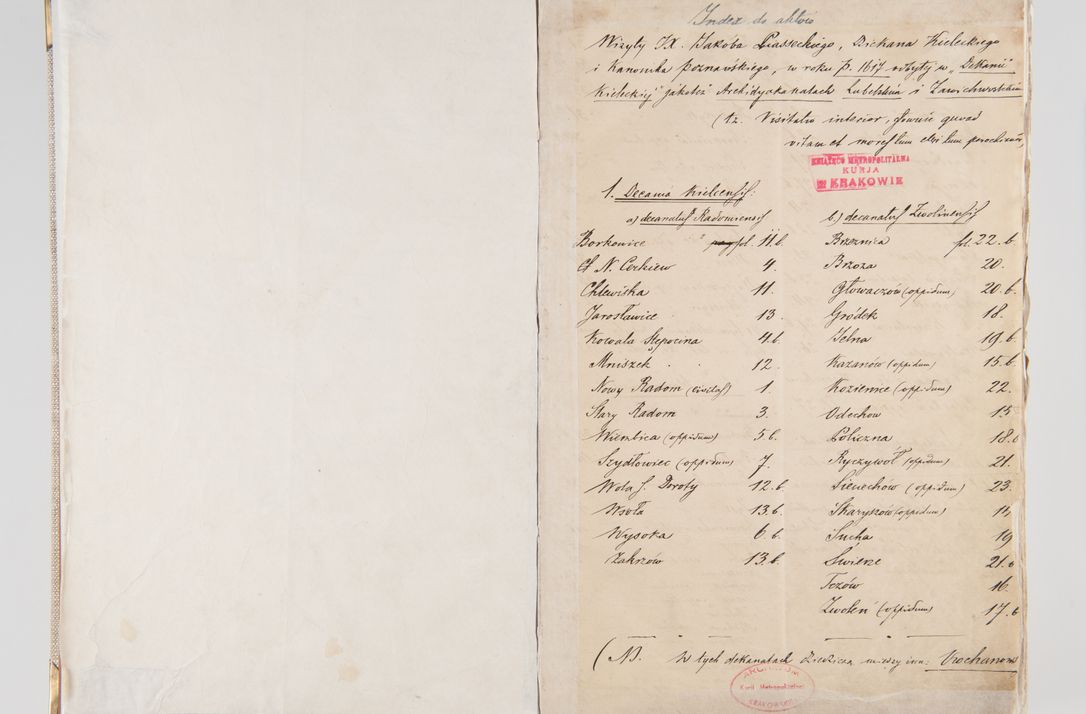 Index do aktów
Wizyty JX. Jakóba Piaseckiego, Dziekana Kieleckiego
i Kanonika Poznańskiego, w roku p. 1617 odbytej w "Dekanii
Kieleckiej" jakoteż Archidyakonatach Lubelskim i Zawichostskim
(tz. Visitatio interior, głównie quoad
vitam et mores tum cleri tum parochianor.
KSIĄŻĘCO METROPOLITALNA
KURJA
W KRAKOWIE
1. Decania Kielcensis:
a) decanatus Radomiensis
Borkowice fol. 11.b.
Cerkiew 4.
Chlewiska 11.
Jarosławice 13.
Kowala Stępocina 4.b.
Mniszek 12.
Nowy Radom (civitas) 1.
Stary Radom 3.
Wierzbica (oppidum) 5.b.
Szydłowiec (oppidum) 7.
Wola S. Doroty 12.b.
Wsoła 13.b.
Wysoka 6.b.
Zakrzów 13.b.
b.) decanatus Zwolinensis
Brzeznica fol. 22.b.
Brzoza 20.
Głowaczów (oppidum) 20.b.
Grodek 18.
Jelna 19.b.
Kazanów (oppidum) 15.b.
Kozienice (oppidum) 22.
Odechow 15
Policzna 18.b
Ryczywół (oppidum) 21.
Sieciechów (oppidum) 23.
Skaryszów (oppidum) 14
Sucha 19
Swierze 21.b
Tczów 16.
Zwoleń (oppidum) 17.b
(NB. W tych dekanatach między inn: Vrochanows
ARCHIWUM
Kurii Metropolitalnej
KRAKOWSKIEJ